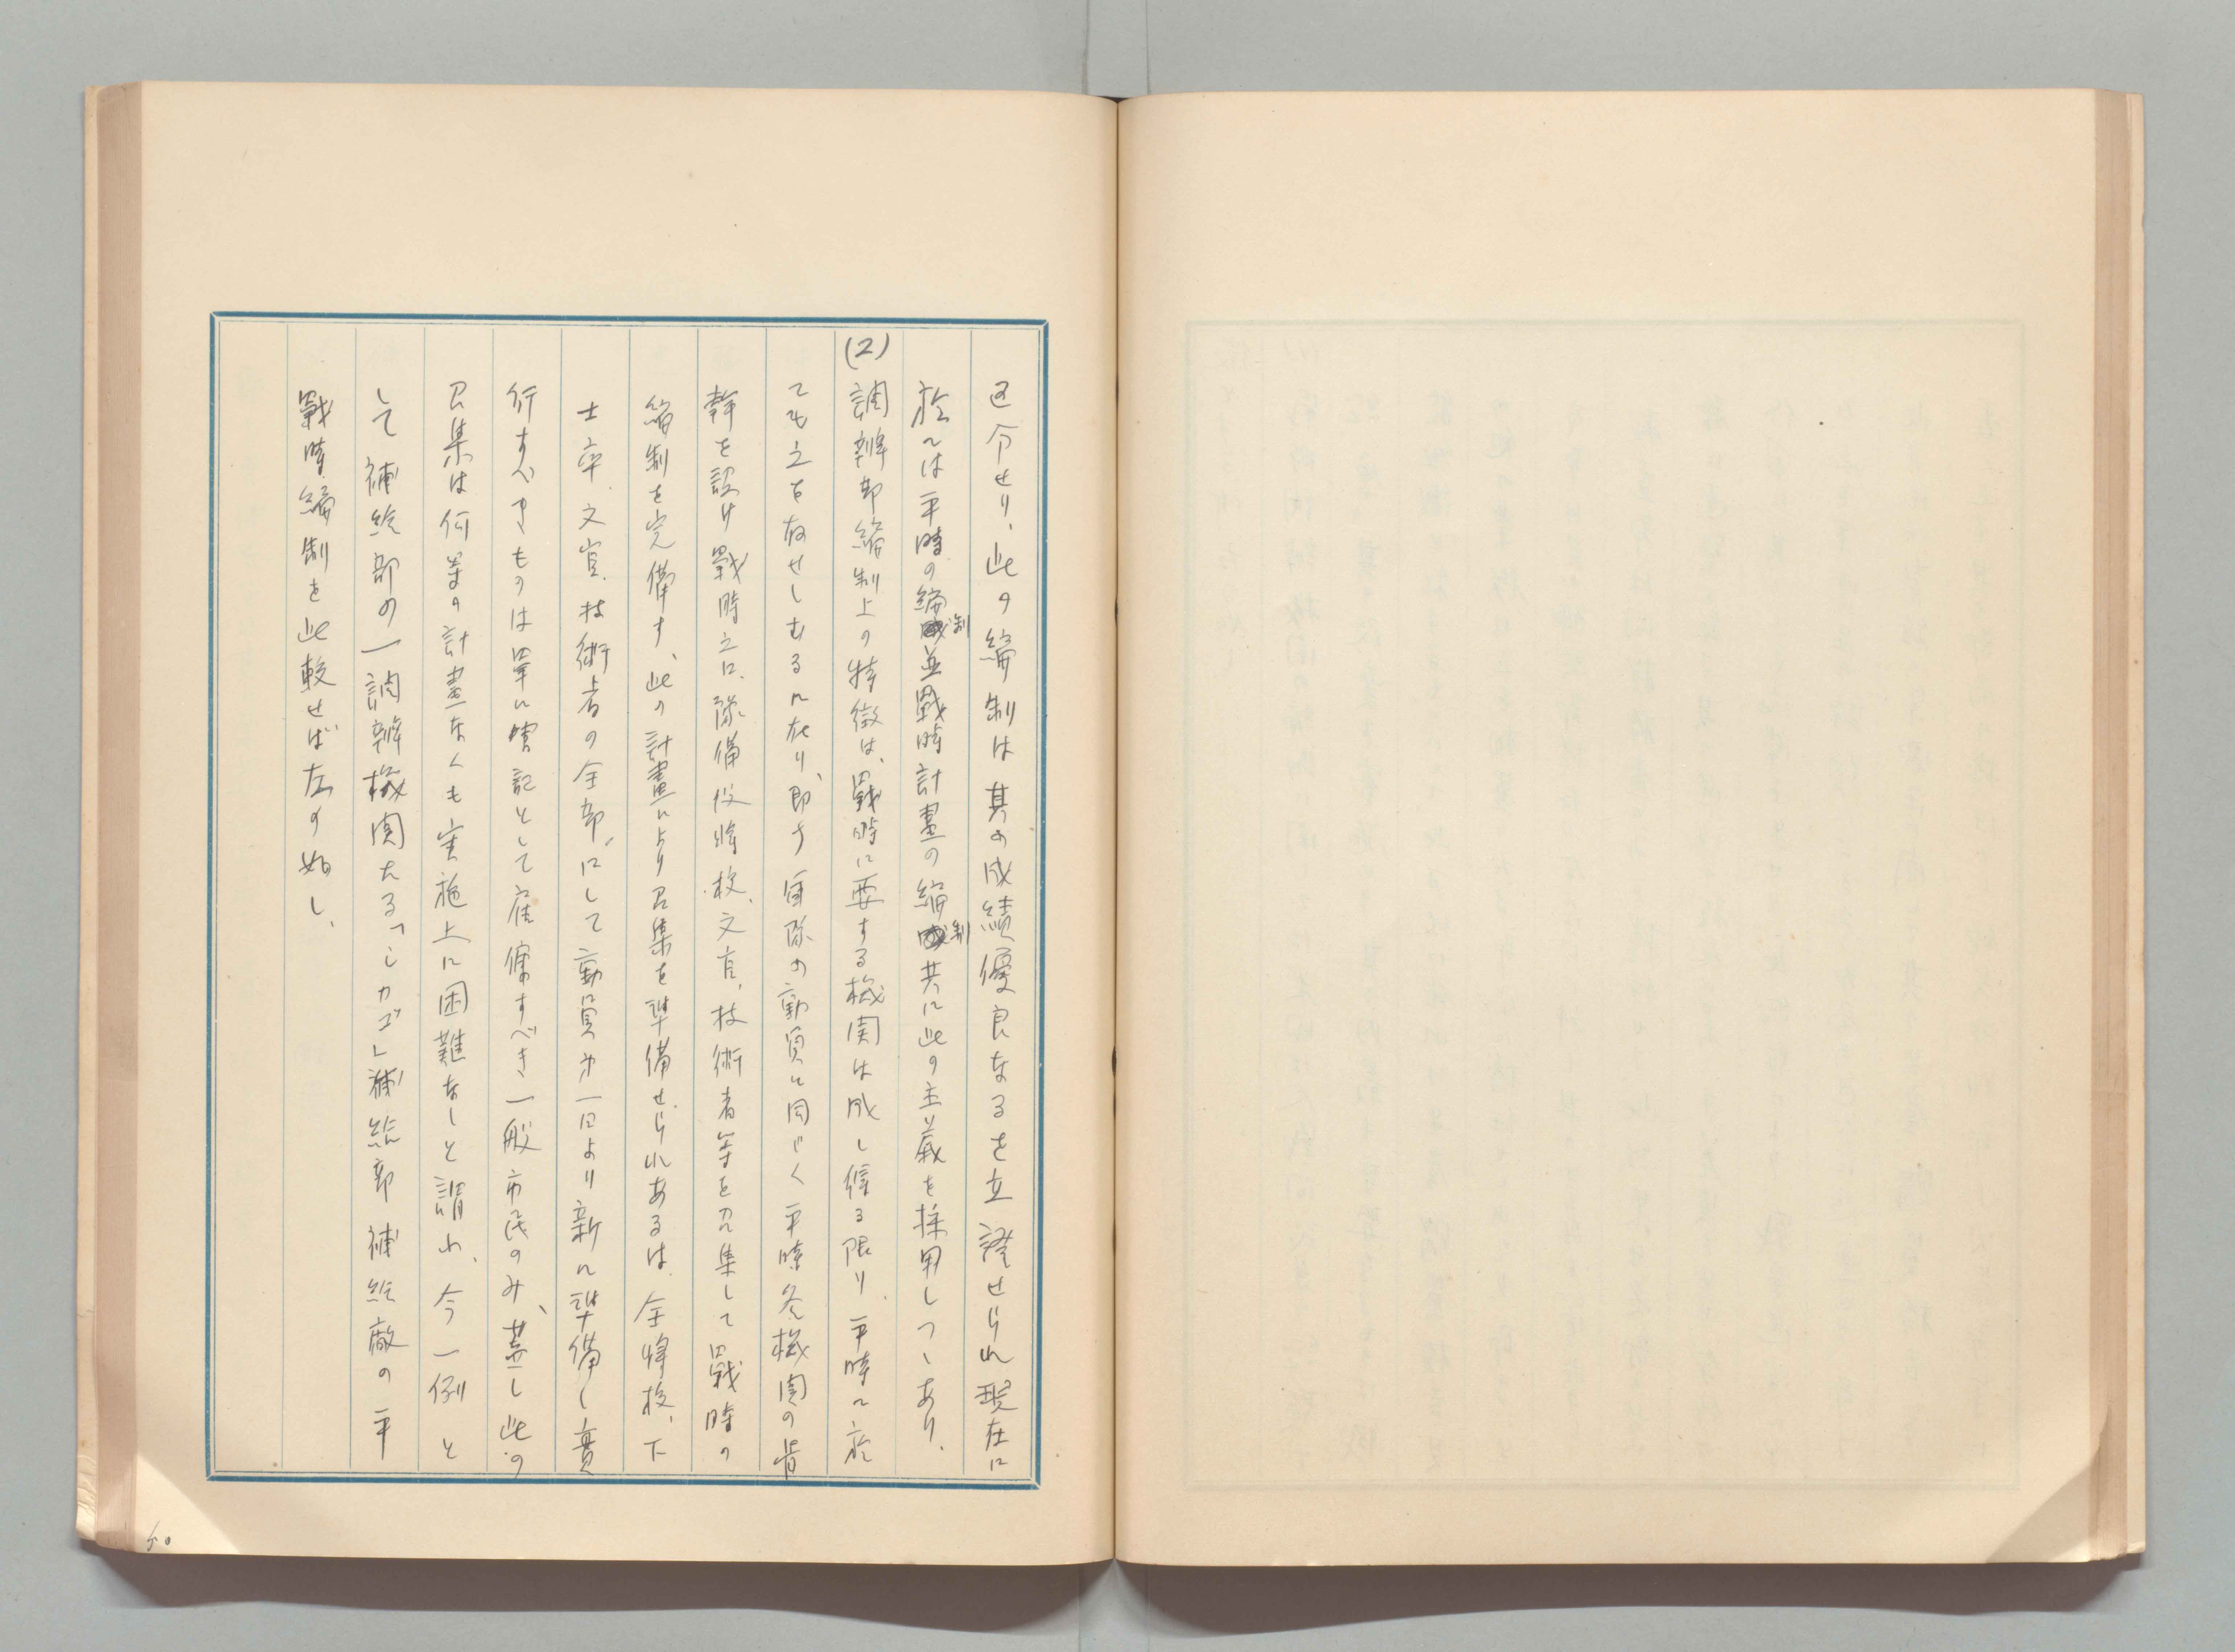 区分せり、此の編制は其の成績優良なるを立證せられ現在に
於ては平時の編制並戰時計畫の編制共に此の主義を採用しつゝあり、
(2) 調辨部編制上の特徴は、戰時に要する機関は成し得る限り、平時に於
ても之を有せしむるに在り、即ち軍隊の動員と同じく平時各機関の骨
幹を設け戰時之に、豫備役将校、文官、技術者等を召集して戰時の
編制を完備す、此の計畫により召集を準備せられあるは、全将校、下
士卒、文官、技術者の全部、にして動員第一日より新に準備し實
行すべきものは單に書記として雇傭すべき一般市民のみ、蓋し此の
召集は何等の計畫なくも実施上に困難なしと謂ふ、今一例と
して補給部の一調辨機関たる「シカゴ」補給部補給廠の平
戰時編制を比較せば左の如し、
50